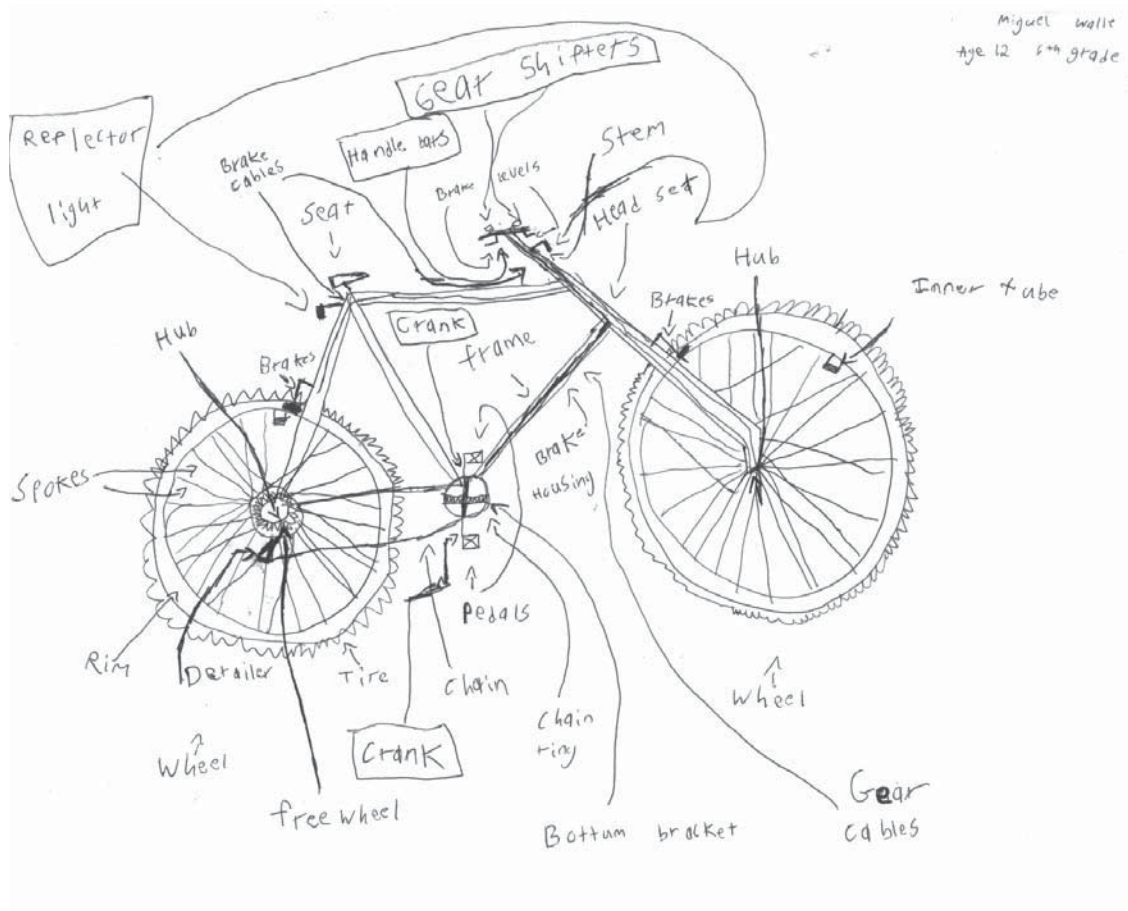 Miguel Walle
Age 12 6th grade
Gear Shifters
Reflector
light
Handle bars
Stem
Brake
cables
Brake levels
Seat
Head set
Hub
Inner tube
Brakes
Hub
Crank
frame
Brakes
Brake
Housing
Spokes
Pedals
Rim
Detailer
Tire
Chain
Wheel
Chain
ring
Wheel
Crank
free wheel
Bottum bracket
Gear
cables